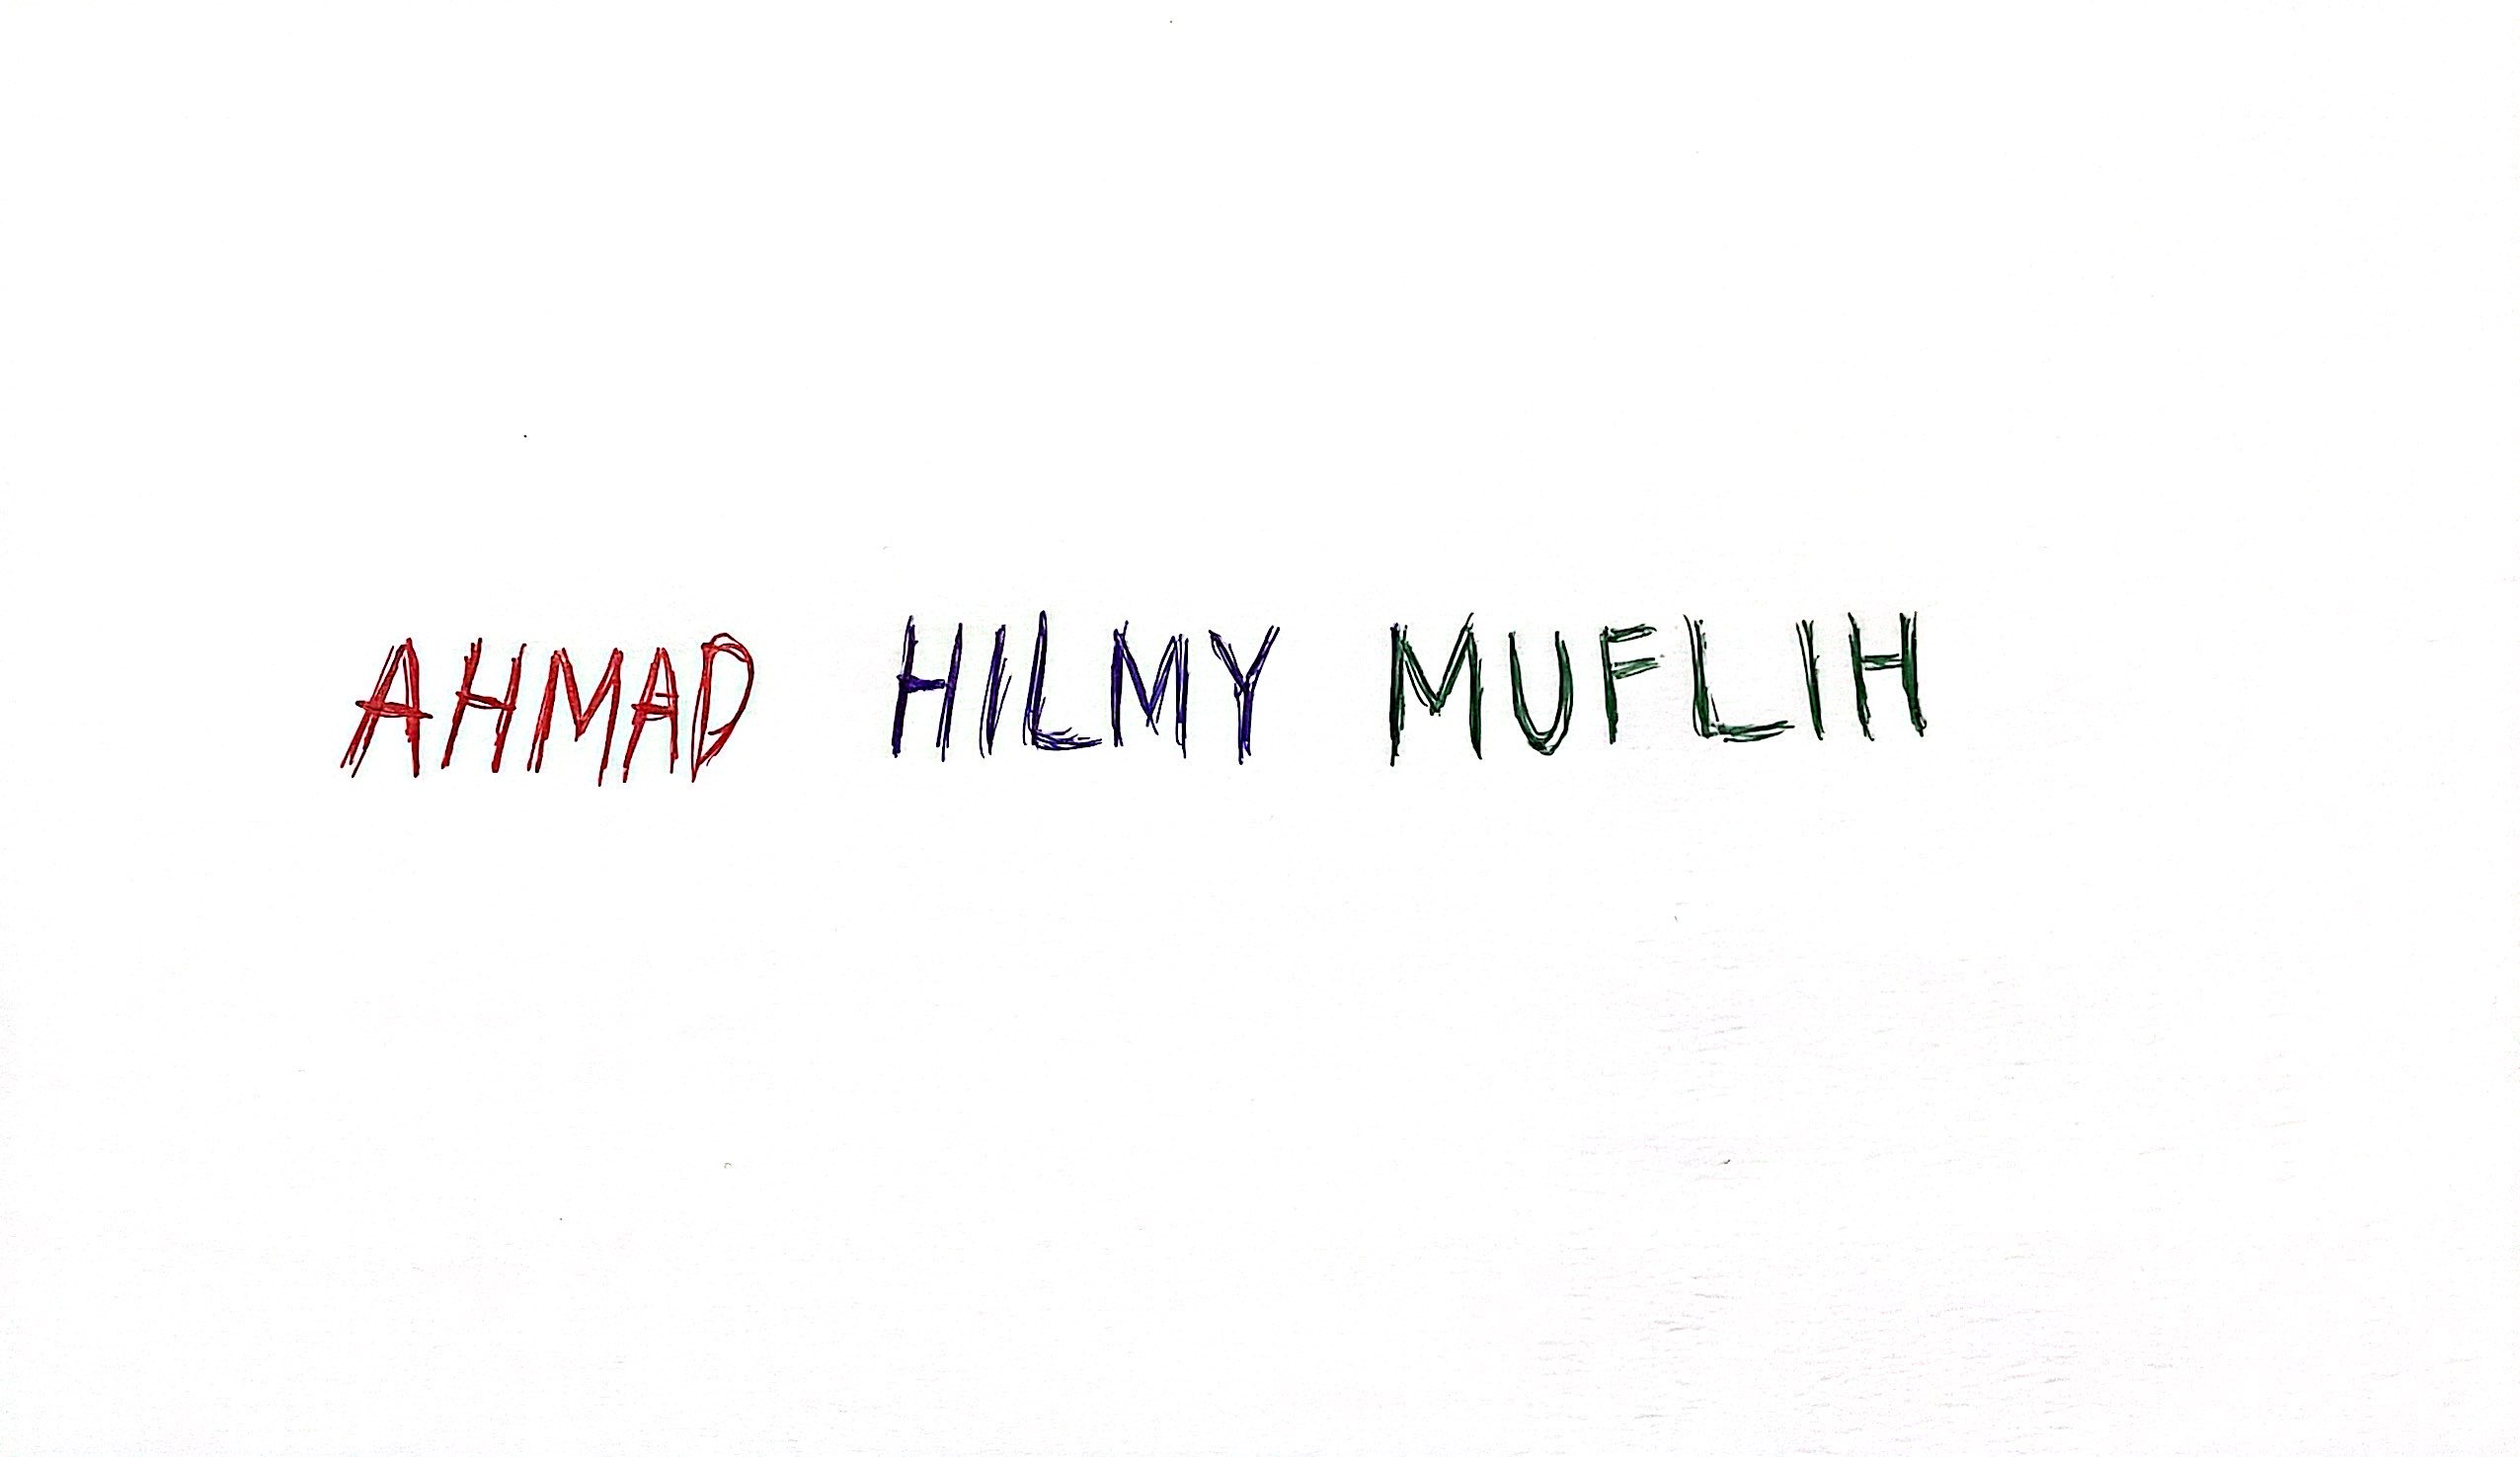 AHMAD HILMY MUFLIH